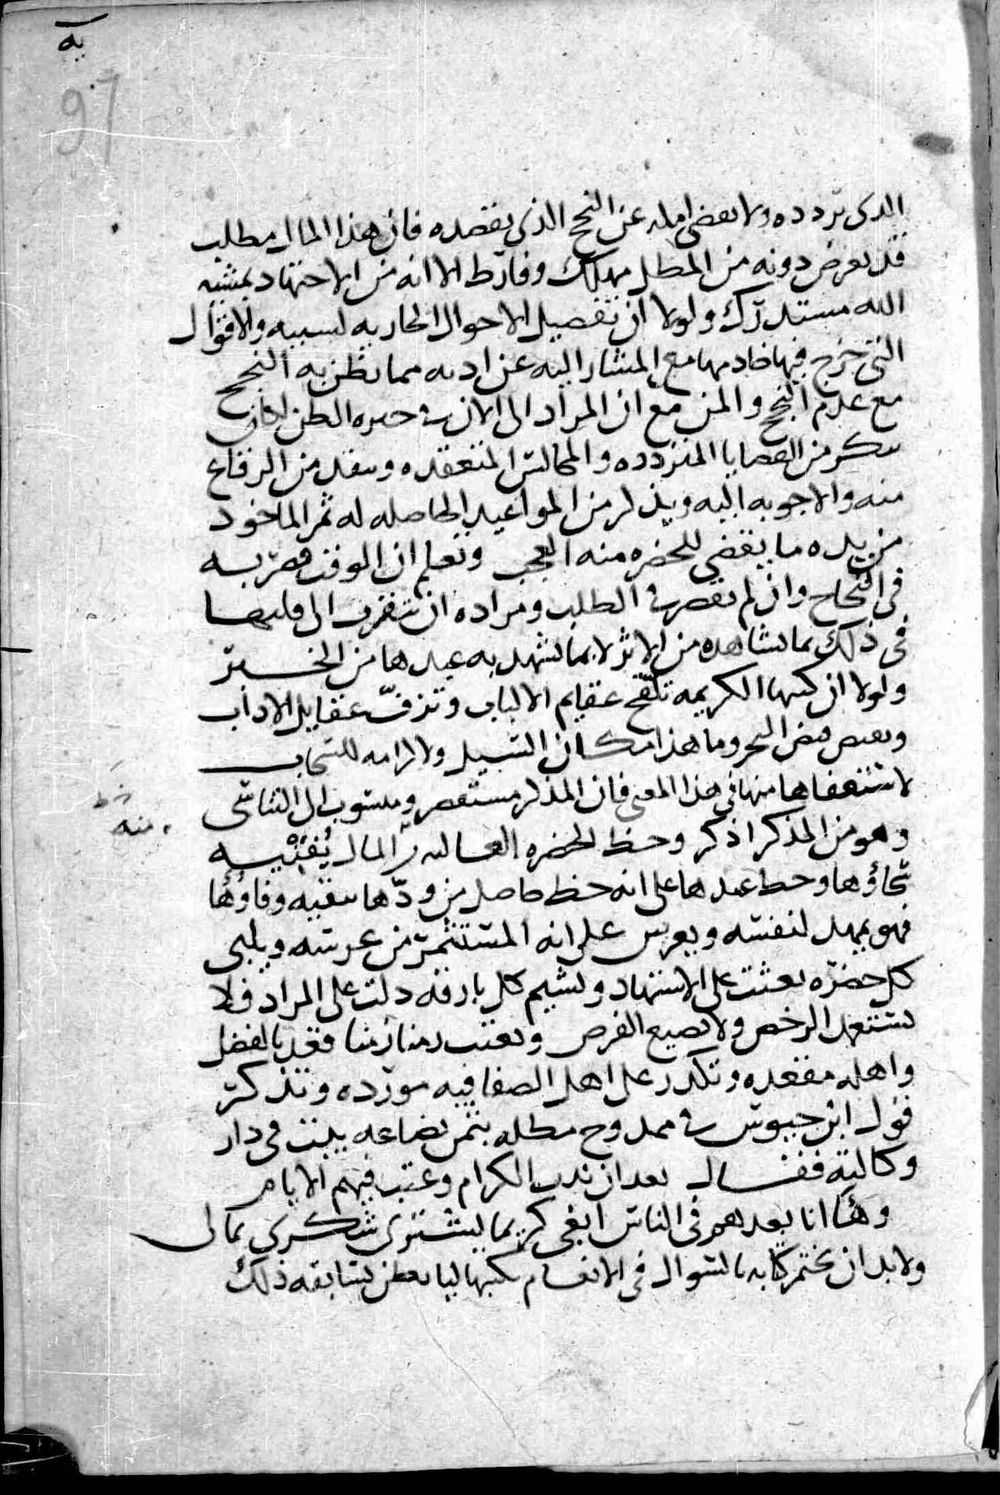 به
97
الذى تردده ولا يفضى امله عن النجح الذى يقصده فان هذا المال مطلب
قد تعرض دونه من المطل مهلك وفارط الا انه من الاجتهاد بمشيه
الله مستدرك ولولا ان تفصيل الاحوال الجاريه لسببه والاقوال
التى خرج فيها خادمها مع المشار اليه عن ادبه مما يظن به النجح
مع عدم النجح والمن مع ان المراد الى الان فى حيره الظن لكان
يذكر من القضايا المتردده والمجالس المنعقده وينفد من الرقاع
منه والاجوبه اليه ويذكر من المواعيد الحاصله له ثم الماخوذ
من يده ما يقضى للحضره منه العجب وتعلم ان الوقت قصر به
فى النجاح وان لم يقصر فى الطلب ومراده ان يتقرب الى قلبها
فى ذلك بما تشاهده من الاثر لا بما يشهد به عبدها من الخبر
ولولا ان كتبها الكريمه تلقح عقايم الالباب وتزف عقايل الاداب
وتفيض فيض البحر وما هذا مكان السبيل ولا الرامه للسحاب
لاستعفاها منها فى هذا المعنى فان المذكر مستقصر ومنسوب الى التناسى
وهو من المذكر اذكر وحظ الحضره العاليه من المال يفنيه
سخاؤها وحظ عبدها على انه حظ حاصل من ودها يبقيه وفاؤها
فهو يمهد لنفسه ويغرس على انه المستثمر من غرسه ويلبى
كل حضره بعثت على الاستنهاد ويشيم كل بارقه دلت على المراد فلا
يستعمل الرخص ولا يضيع الفرص ويعتب زمنا قعد بالفضل
واهله مقعده وتكدر على اهل الصفا فيه مورده وتذكر
قول ابن حيوس فى ممدوح مطله بثمن بضاعه بيعت فى دار
وكالته فقال بعد ان ندب الكرام وعتب فيهم الايام
وها انا بعدهم فى الناس ابغى كريما يشترى شكرى بمالى
ولا بد ان يختم كتابه بالسوال فى الانعام بكتبها